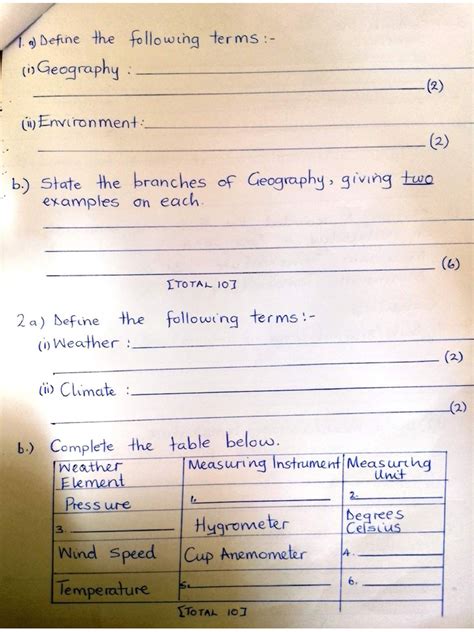 1. a) Define the following terms :-
(i) Geography : ______
______ (2)
(ii) Environment: ______
______ (2)
b.) State the branches of Geography, giving two
examples on each.
______
______ (6)
[TOTAL 10]
2 a) Define the following terms :-
(i) Weather : ______
______ (2)
(ii) Climate : ______
______ (2)
b.) Complete the table below.
Weather Element | Measuring Instrument | Measuring Unit
Pressure | 1. ______ | 2. ______
3. ______ | Hygrometer | Degrees Celsius
Wind Speed | Cup Anemometer | 4. ______
Temperature | 5. ______ | 6. ______
[TOTAL 10]